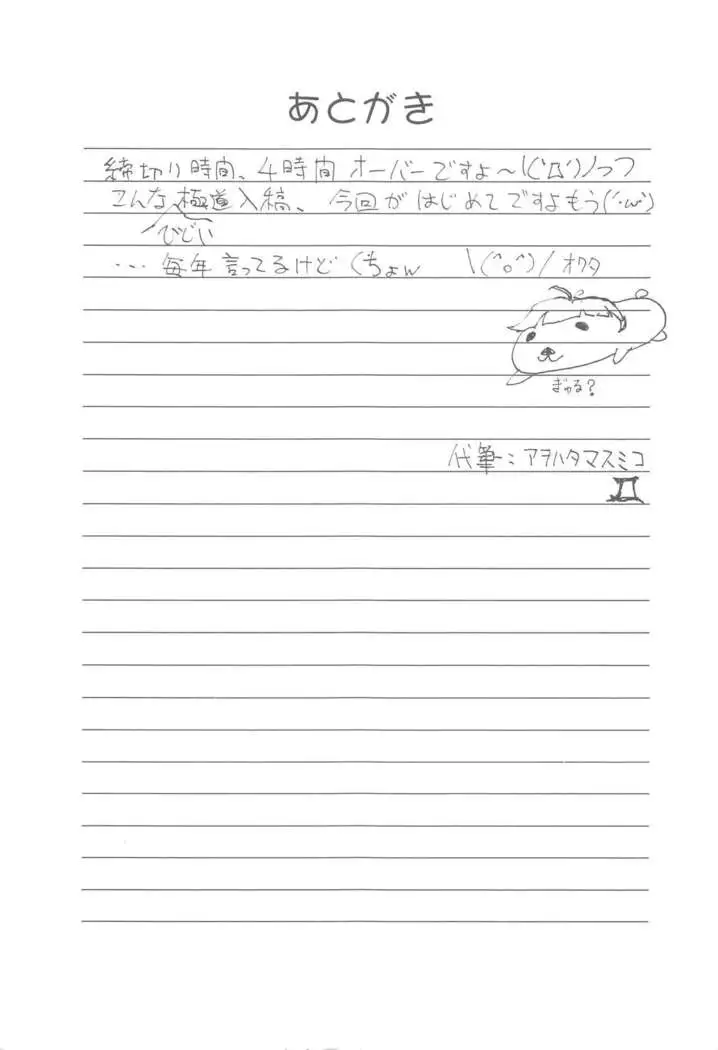 あとがき
締切り時間、4時間オーバーですよ~\(('Д')ノっつ
こんな極道入稿、今回がはじめてですよもう(´・ω・`)
ひどい
… 毎年言ってるけどくちょw \(^o^)/オワタ
ぎゅる?
代筆:アヲハタマスミコ